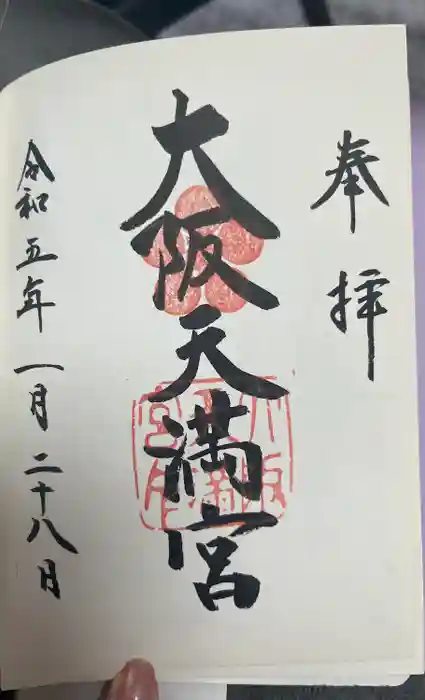 奉拝
大阪天満宮
令和五年一月二十八月